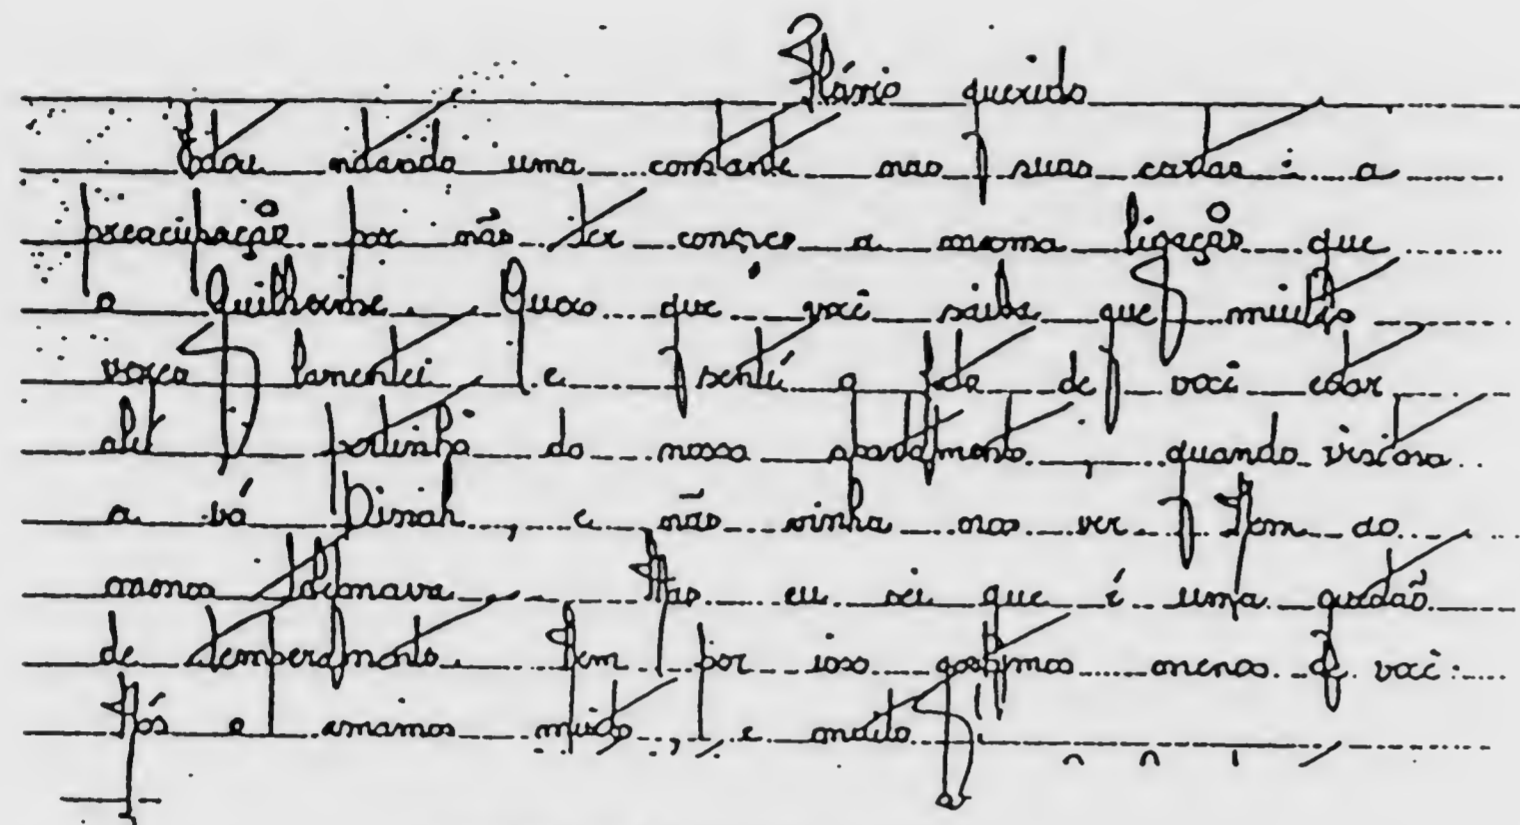 Flávio querido
Estou notando uma constante nas suas cartas: a
preocupação por não ter conosco a mesma ligação que
o Guilherme. Quero que você saiba que muitas
vezes lamentei e senti o fato de você estar
ali pertinho do nosso apartamento, quando visitava
a vó Dinah, e não vinha nos ver. Nem ao
menos telefonava. Mas eu sei que é uma questão
de temperamento. Nem por isso gostamos menos de você.
Nós o amamos muito, e muito